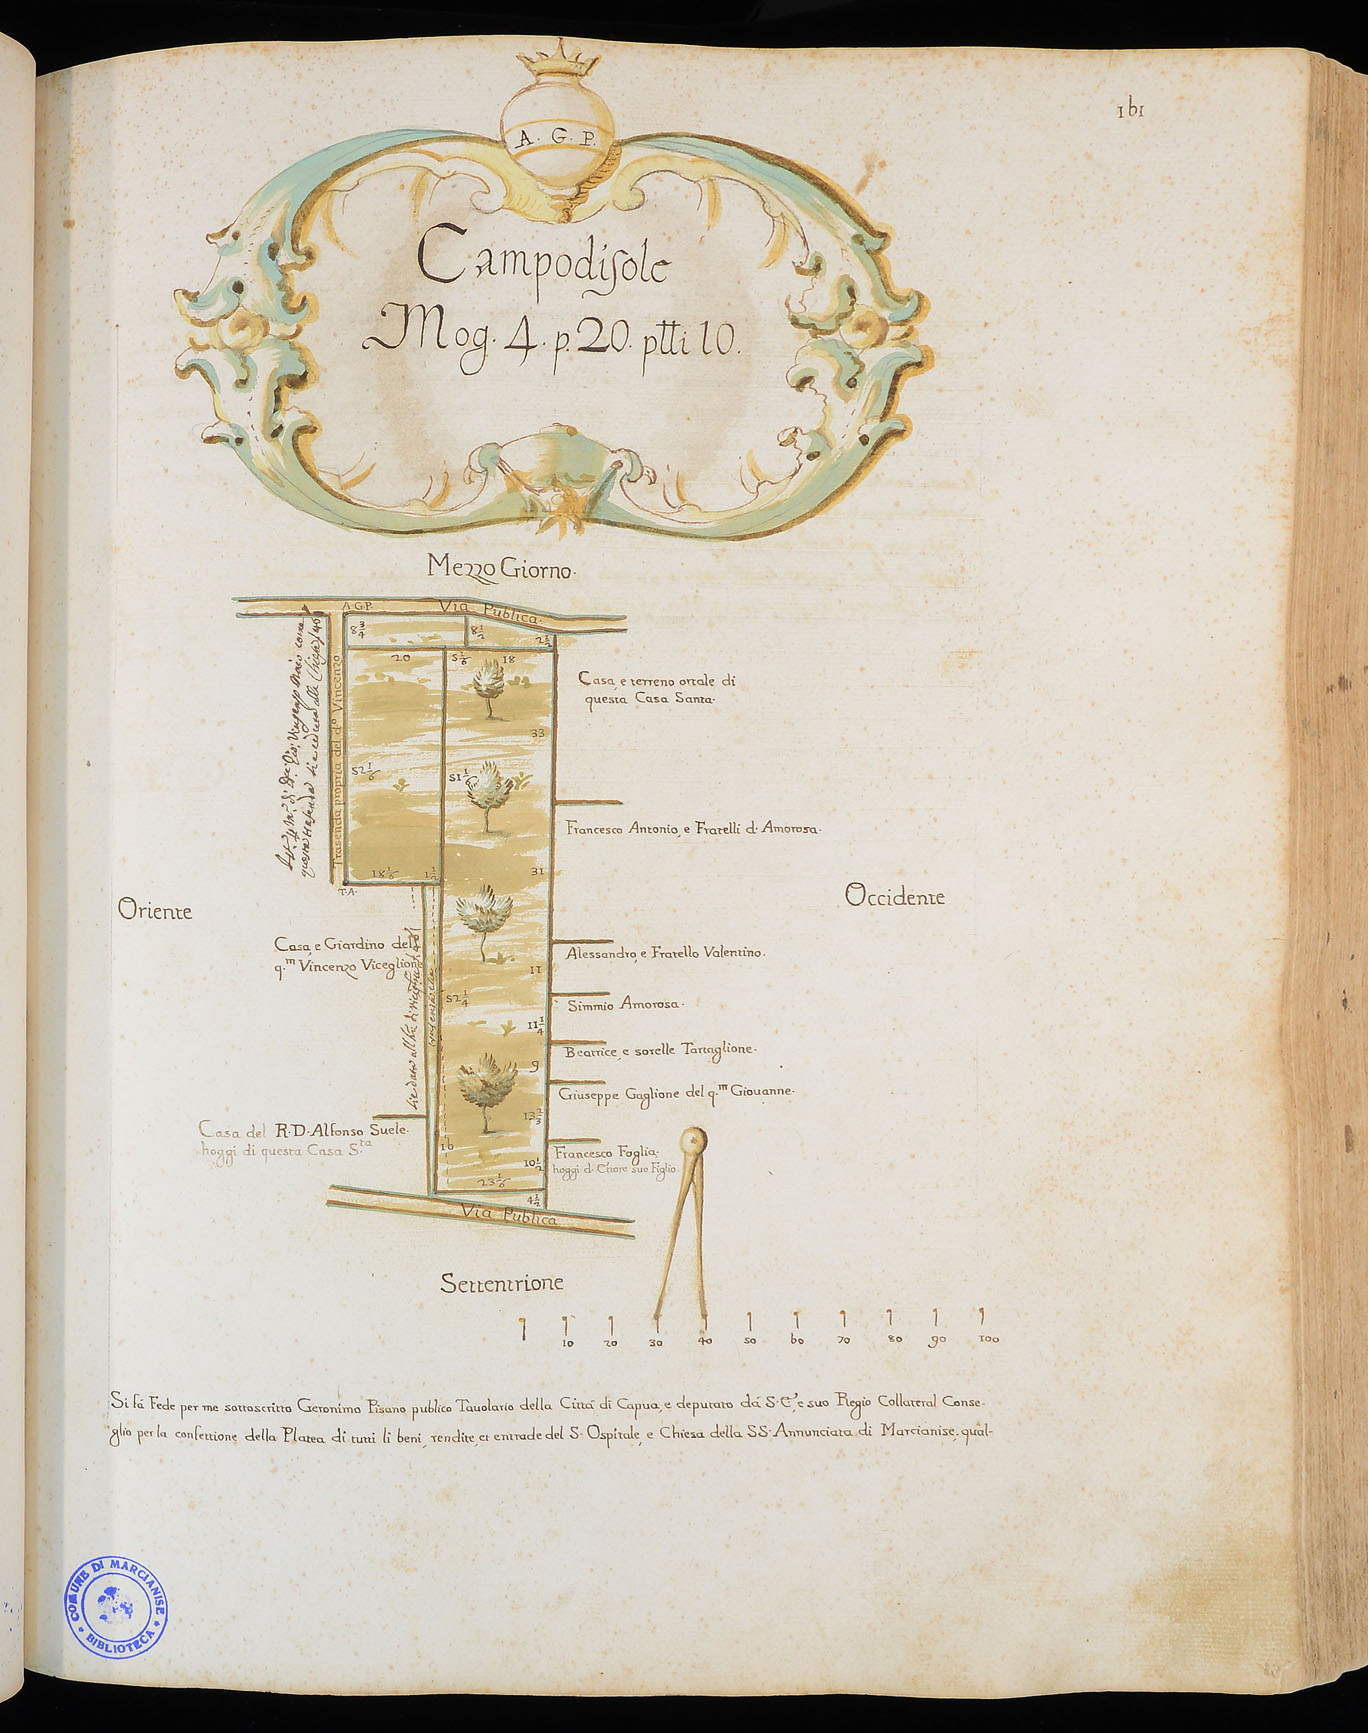 161
A. G. P.
Campodisole
Mog. 4. p. 20. ptti 10.
Mezzo Giorno.
A.G.P. Via Publica.
8 3/4
8 1/2
2 1/2
20
5 1/6 18
Casa, e terreno ortale di
questa Casa Santa.
Trasenda propria del d.º Vincenzo
33
52 1/6
51 1/6
Francesco Antonio, e Fratelli d'Amorosa.
31
18 1/6
1 1/2
T.A.
Oriente
Occidente
Casa, e Giardino del
q.m Vincenzo Viceglione
Alessandro, e Fratello Valentino.
11
52 1/4
Simmio Amorosa.
11 1/4
Beatrice, e sorelle Tartaglione.
9
Giuseppe Gaglione del q.m Giouanne.
13 2/3
Casa del R. D. Alfonso Suele.
hoggi di questa Casa S.ta
16
Francesco Foglia.
hoggi d. Ettore suo Figlio
10 1/2
23 1/6
4 1/2
Via Publica
Settentrione
10 20 30 40 50 60 70 80 90 100
Si fá Fede per me sottoscritto Geronimo Pisano publico Tauolario della Cittá di Capua, e deputato dá S. E., e suo Regio Collateral Conse-
glio per la confettione della Platea di tutti li beni, rendite, et entrade del S. Ospitale, e Chiesa della SS. Annunciata di Marcianise, qual-
COMUNE DI MARCIANISE
BIBLIOTECA